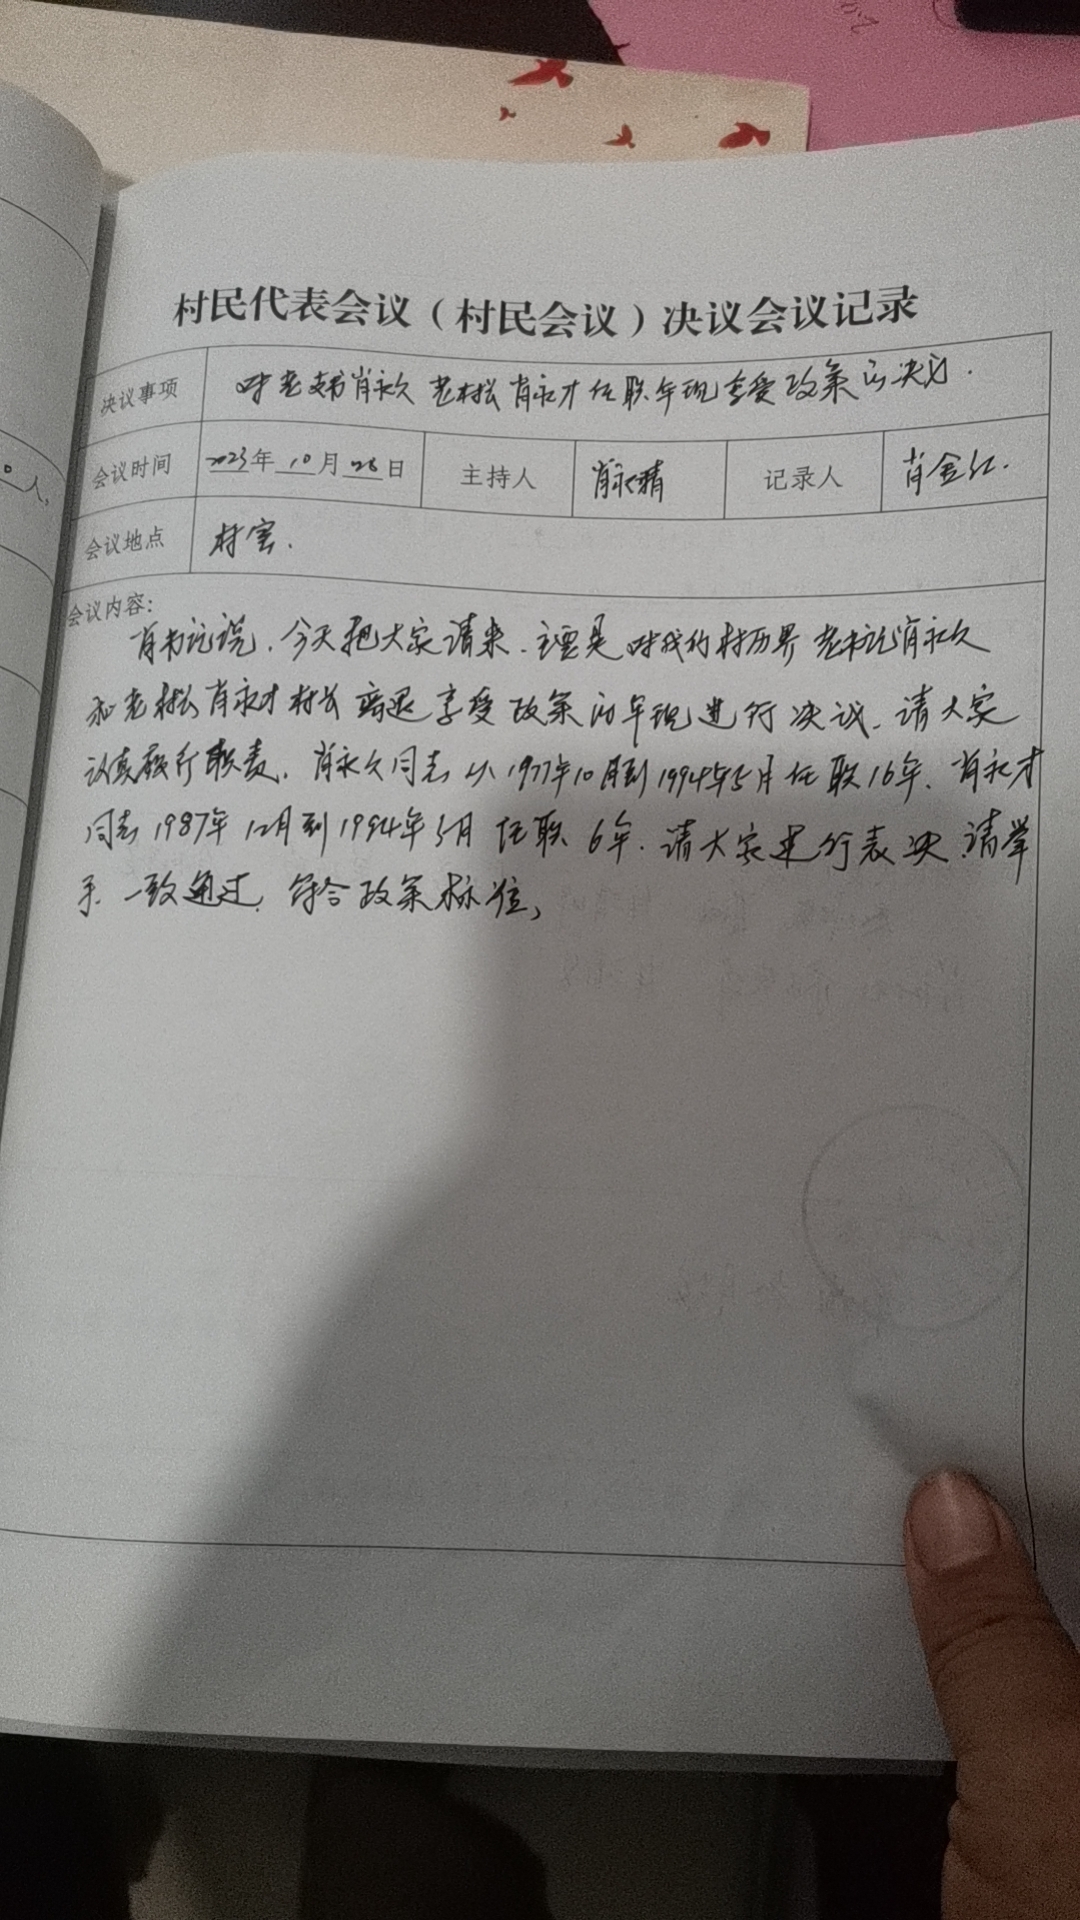 村民代表会议（村民会议）决议会议记录
决议事项 对老支书肖永久 老村长肖永才任职年现享受政策的决议.
会议时间 2023年 10月 26日 主持人 肖永精 记录人 肖金红.
会议地点 村室.
会议内容:
肖书记说. 今天把大家请来. 主要是对我们村历界老书记肖永久
和老村长肖永才村长 离退享受政策的年现进行决议. 请大家
认真履行职责. 肖永久同志从1977年10月到1994年5月任职16年. 肖永才
同志1987年12月到1994年5月任职6年. 请大家进行表决. 请举
手. 一致通过. 符合政策标位,